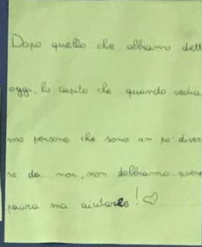 Dopo quello che abbiamo dett
oggi, ho capito che quando vedia
mo persone che sono un po' diver
se da noi, non dobbiamo avere
paura ma aiutarle! ♡